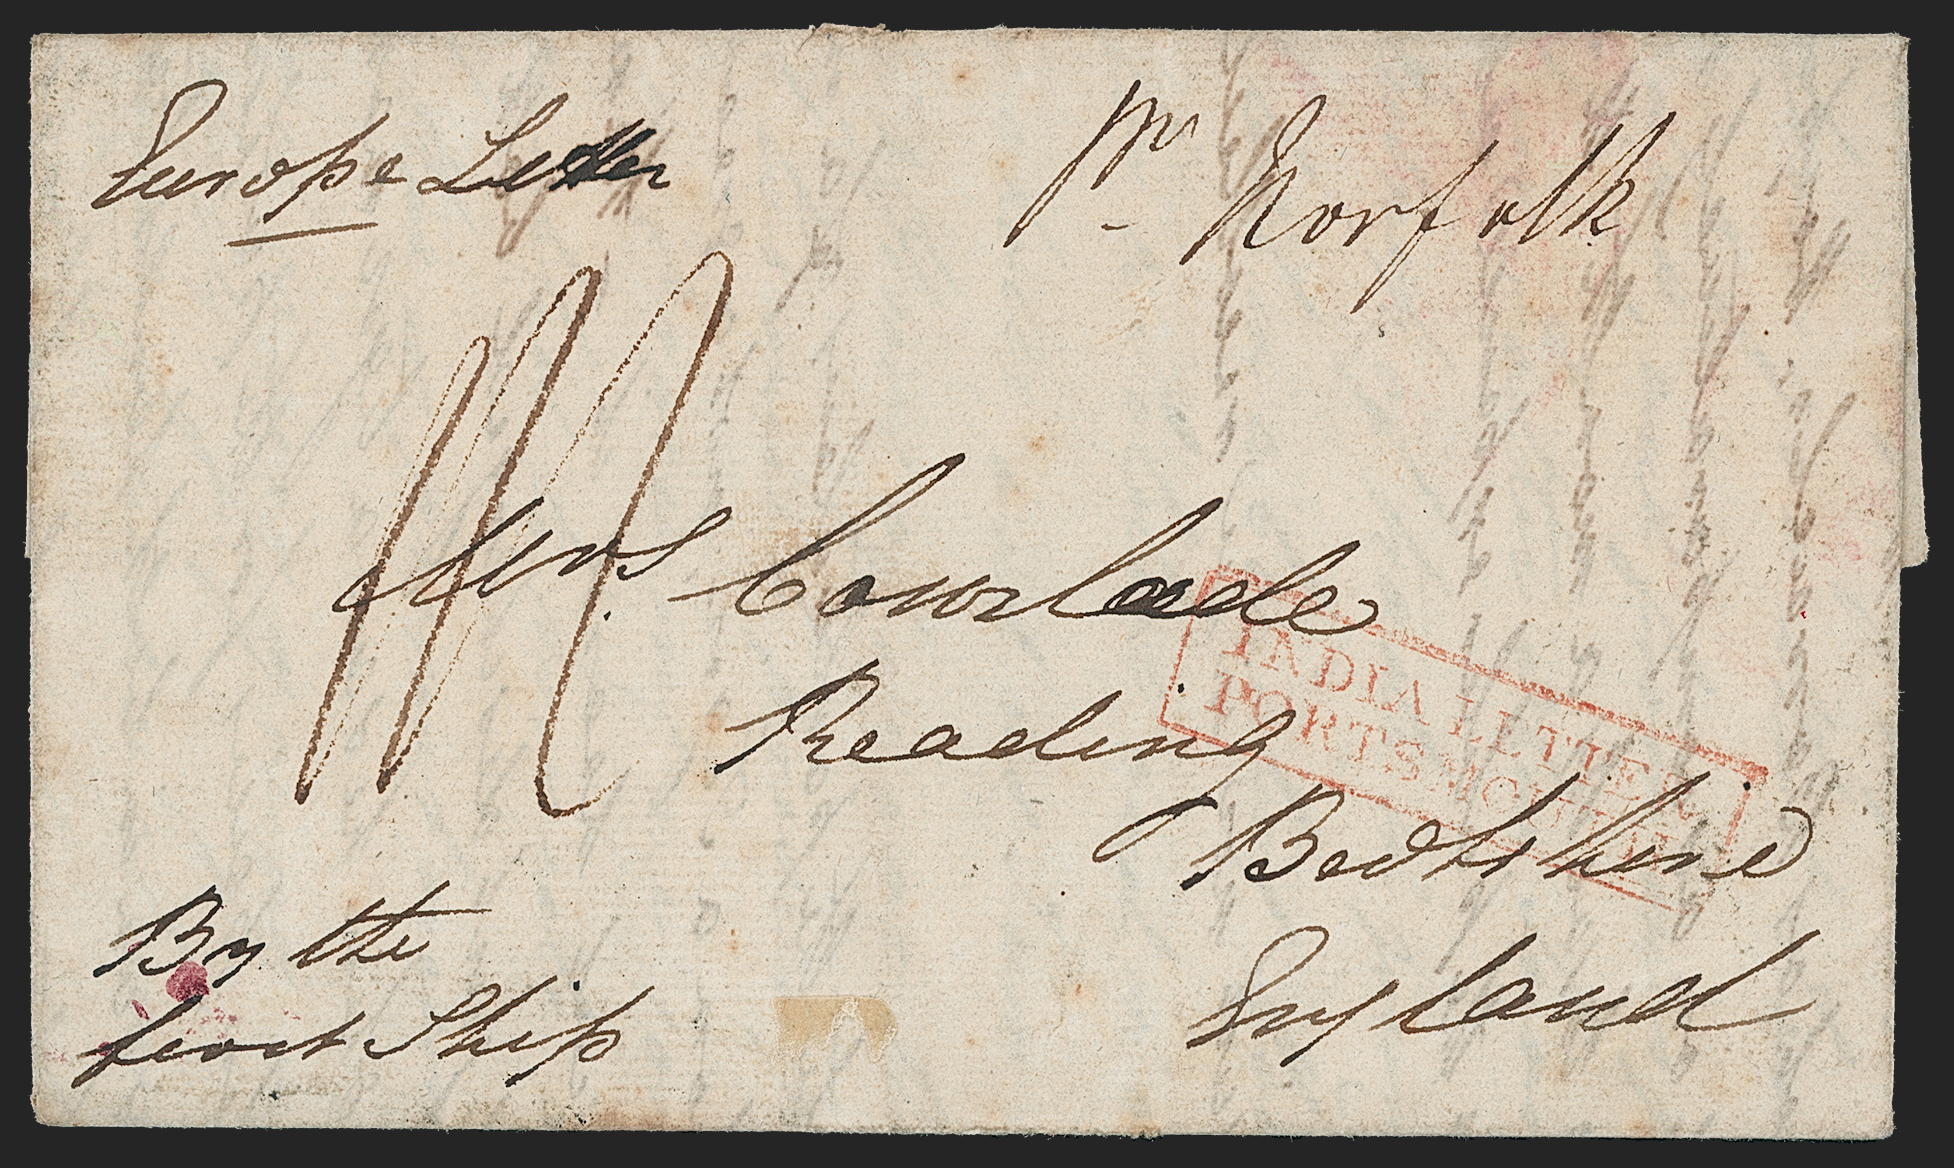 Europe Letter
pr Norfolk
Mrs Courlade
Reading
INDIA LETTER
PORTSMOUTH
Berkshire
England
By the
first Ship